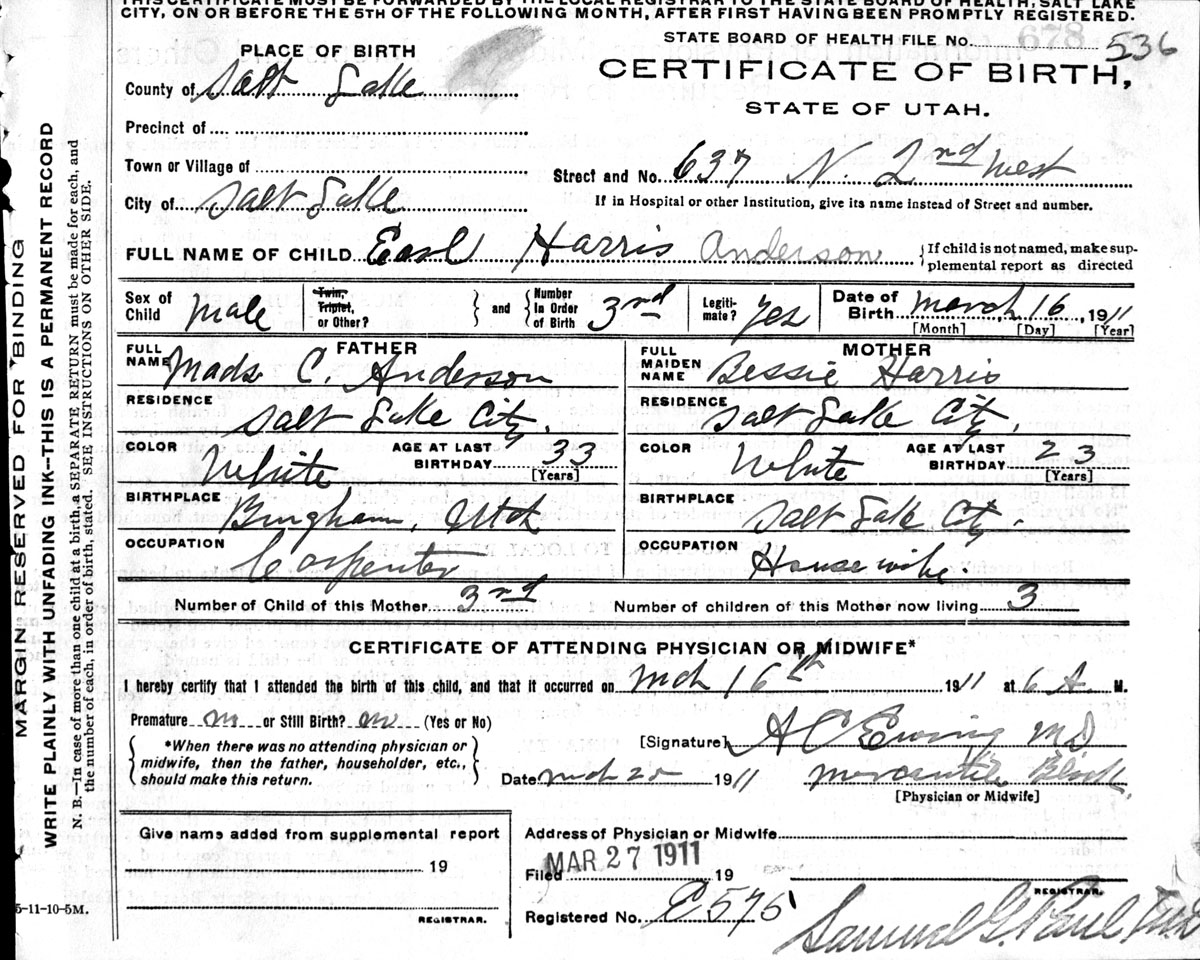 THIS CERTIFICATE MUST BE FORWARDED BY THE LOCAL REGISTRAR TO THE STATE BOARD OF HEALTH, SALT LAKE
CITY, ON OR BEFORE THE 5TH OF THE FOLLOWING MONTH, AFTER FIRST HAVING BEEN PROMPTLY REGISTERED.
STATE BOARD OF HEALTH FILE No. 678 536
PLACE OF BIRTH
CERTIFICATE OF BIRTH,
STATE OF UTAH.
County of Salt Lake
Precinct of
Town or Village of
Street and No. 637 N. 2nd West
City of Salt Lake
If in Hospital or other Institution, give its name instead of Street and number.
FULL NAME OF CHILD Earl Harris Anderson
{If child is not named, make sup-
plemental report as directed
Sex of Child Male
Twin, Triplet, or Other? } and { Number In Order of Birth 3rd
Legiti-mate? Yes
Date of Birth March 16, 1911
[Month] [Day] [Year]
FATHER
FULL NAME Mads C. Anderson
RESIDENCE Salt Lake City.
COLOR White AGE AT LAST BIRTHDAY 33 [Years]
BIRTHPLACE Bingham, Utah
OCCUPATION Carpenter
MOTHER
FULL MAIDEN NAME Bessie Harris
RESIDENCE Salt Lake City.
COLOR White AGE AT LAST BIRTHDAY 23 [Years]
BIRTHPLACE Salt Lake City.
OCCUPATION Housewife
Number of Child of this Mother 3rd Number of children of this Mother now living 3
CERTIFICATE OF ATTENDING PHYSICIAN OR MIDWIFE*
I hereby certify that I attended the birth of this child, and that it occurred on Mch 16th 1911 at 6 A. M.
Premature no or Still Birth? no (Yes or No)
{ *When there was no attending physician or
midwife, then the father, householder, etc.,
should make this return. }
[Signature] A C Ewing MD
Date Mch 25 1911 Mercantile Block.
[Physician or Midwife]
Give name added from supplemental report
19
REGISTRAR.
Address of Physician or Midwife
Filed MAR 27 1911 19
REGISTRAR.
Registered No. E575 Samuel G. Paul
MARGIN RESERVED FOR BINDING
WRITE PLAINLY WITH UNFADING INK--THIS IS A PERMANENT RECORD
N. B.—In case of more than one child at a birth, a SEPARATE RETURN must be made for each, and
the number of each, in order of birth, stated. SEE INSTRUCTIONS ON OTHER SIDE.
5-11-10-5M.